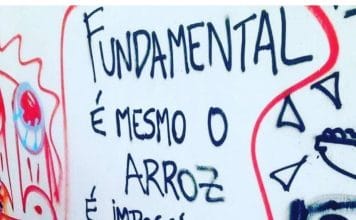 FUNDAMENTAL
É MESMO O
ARROZ
É